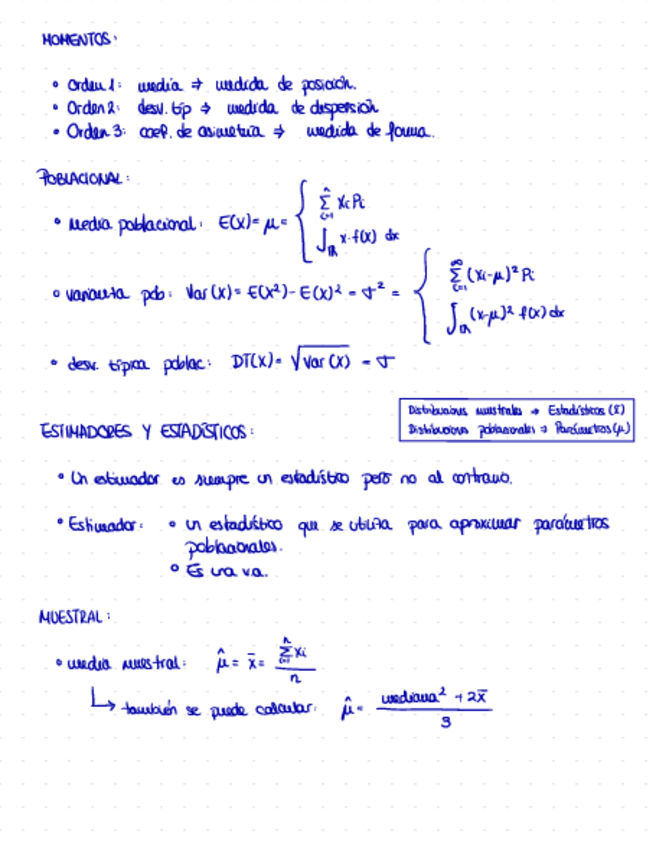 MOMENTOS:
• Orden 1: media ⇒ medida de posición.
• Orden 2: desv. tip ⇒ medida de dispersión
• Orden 3: coef. de asimetria ⇒ medida de forma.
POBLACIONAL:
• Media poblacional: E(X) = μ = { Σ_{i=1}^{n} xi Pi
∫_ℝ x·f(x) dx
• varianza pob: Var(X) = E(X²) - E(X)² = σ² = { Σ_{i=1}^{∞} (xi-μ)² Pi
∫_ℝ (x-μ)² f(x) dx
• desv. típica poblac: DT(X) = √Var(X) = σ
Distribuciones muestrales → Estadísticos (x̄)
Distribuciones poblacionales → Parámetros (μ)
ESTIMADORES Y ESTADÍSTICOS:
• Un estimador es siempre un estadístico pero no al contrario.
• Estimador: • un estadístico que se utiliza para aproximar parámetros
poblacionales.
• Es una va.
MUESTRAL:
• media muestral: μ̂ = x̄ = Σ_{i=1}^{n} xi / n
↳ también se puede calcular: μ̂ = mediana² + 2x̄ / 3